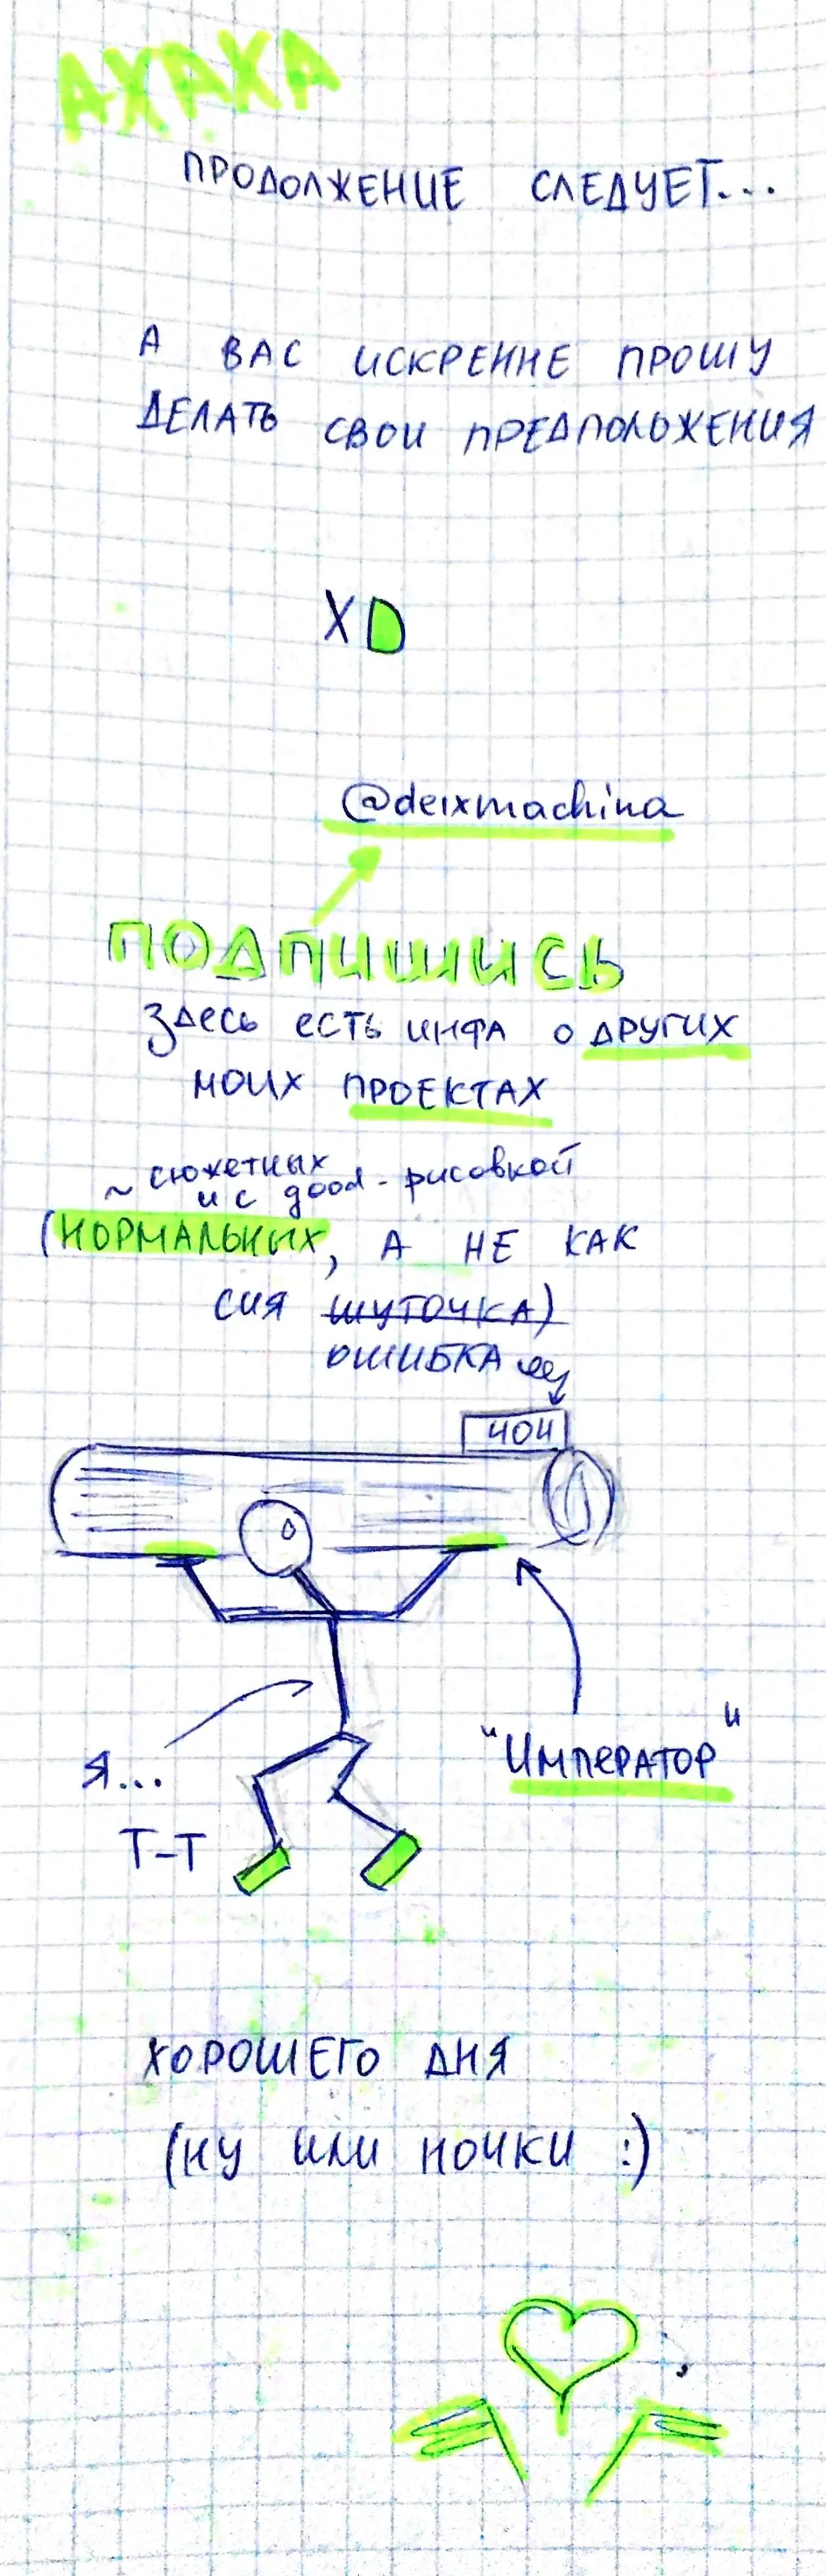 АХАХА
ПРОДОЛЖЕНИЕ СЛЕДУЕТ...
А ВАС ИСКРЕННЕ ПРОШУ
ДЕЛАТЬ СВОИ ПРЕДПОЛОЖЕНИЯ
XD
@deixmachina
ПОДПИШИСЬ
ЗДЕСЬ ЕСТЬ ИНФА О ДРУГИХ
МОИХ ПРОЕКТАХ
~ сюжетных
и с good-рисовкой
(НОРМАЛЬНЫХ, А НЕ КАК
СИЯ ШУТОЧКА)
ОШИБКА
404
"ИМПЕРАТОР"
Я...
Т-Т
ХОРОШЕГО ДНЯ
(НУ ИЛИ НОЧКИ :)